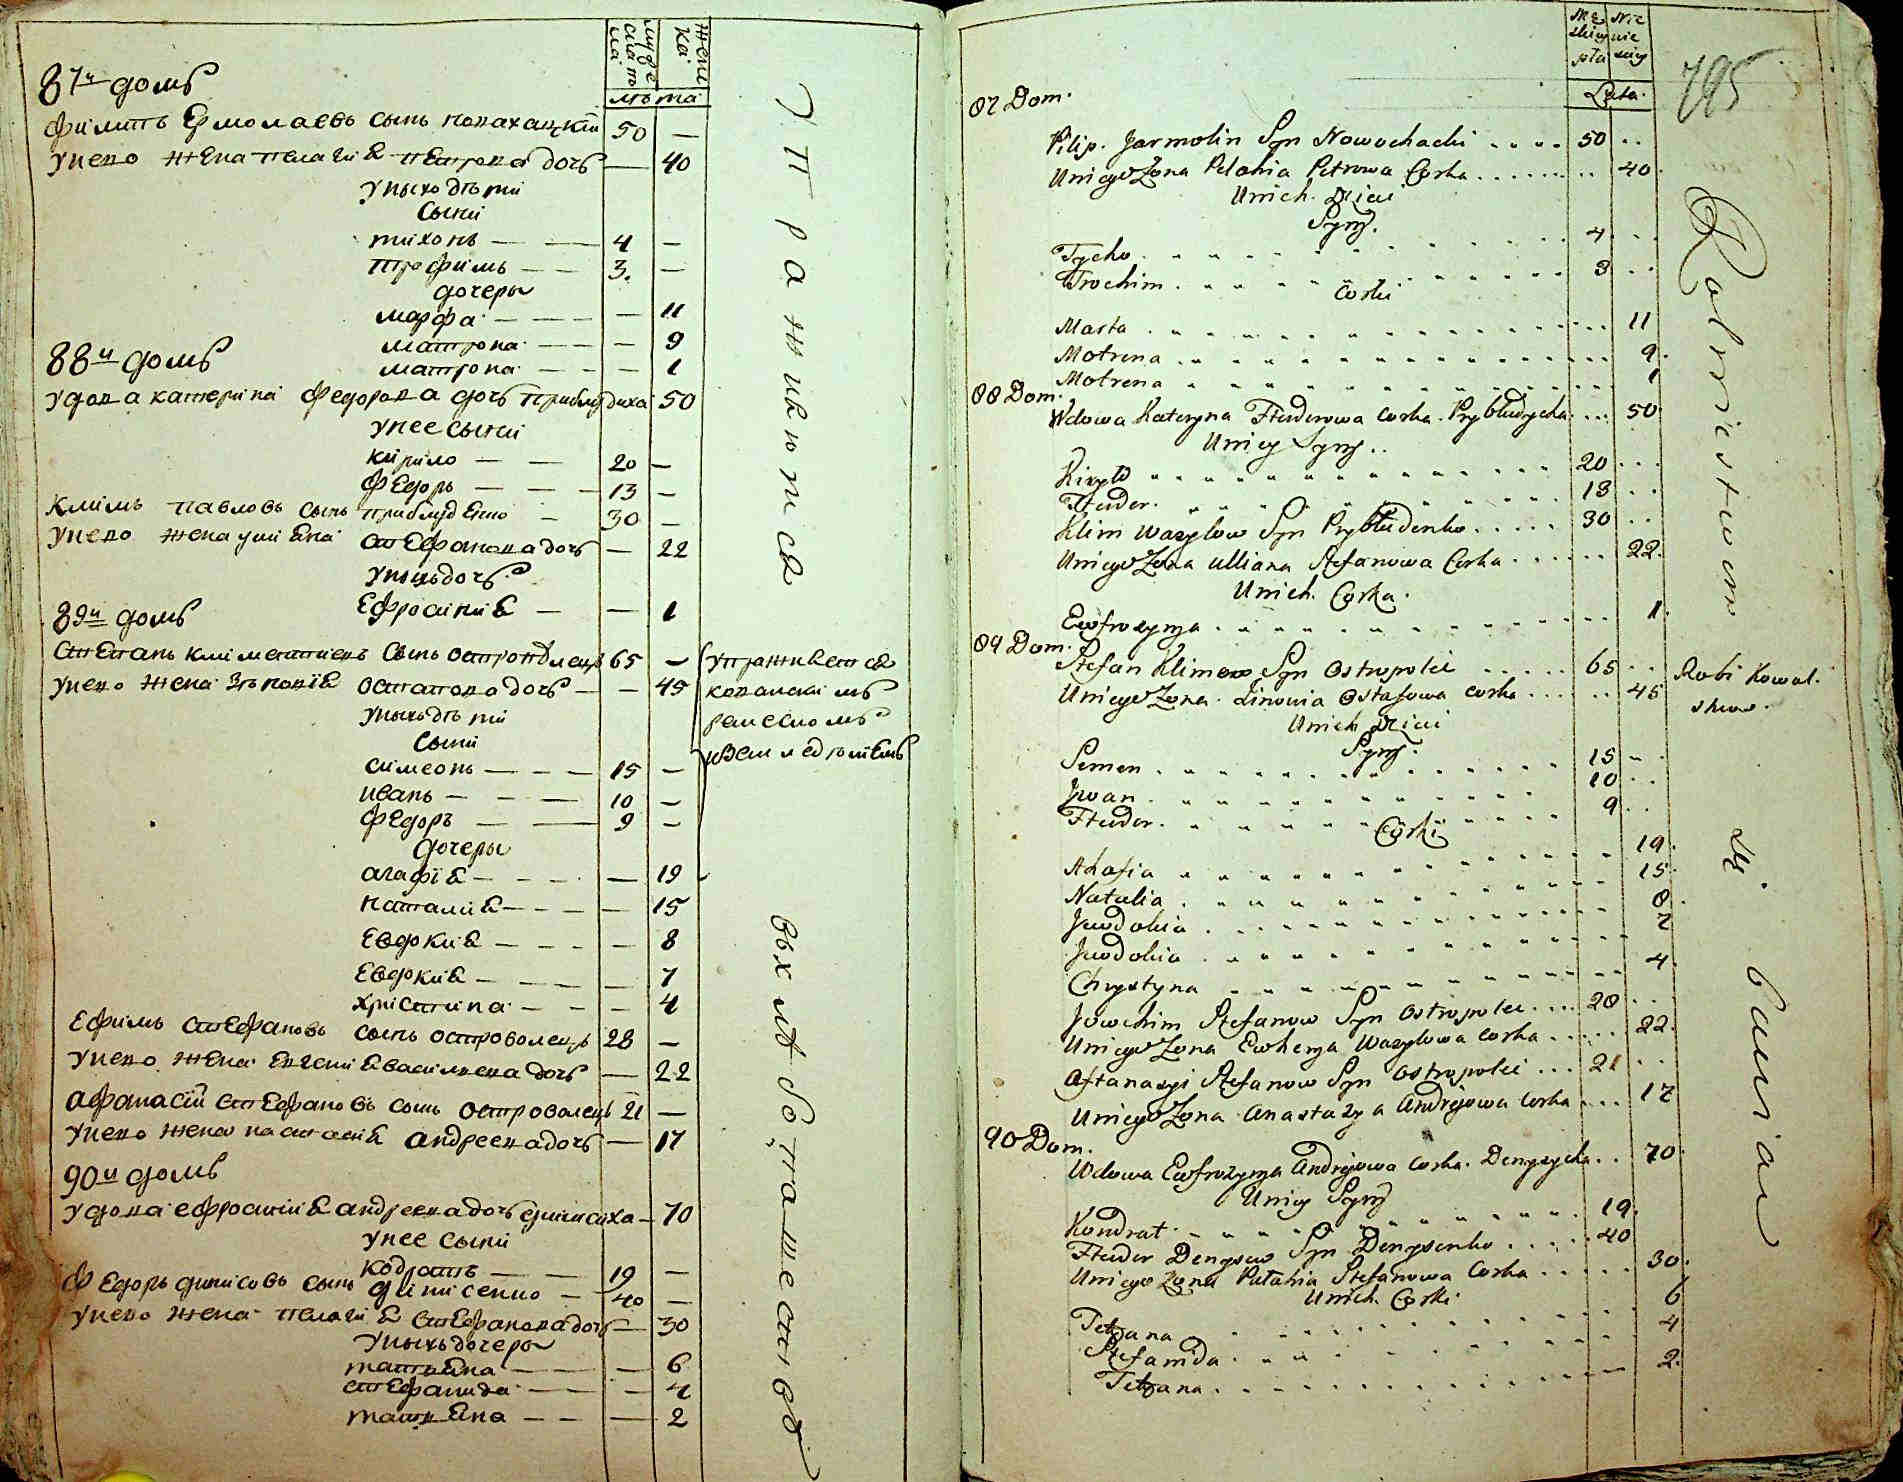 мужеска мѣста
женска
лѣта
87й домъ
Филипъ Ермолаевъ сынъ новахацкїй 50 —
унево жена пелагия петрова дочь — 40
унихъ дѣти
сыни
тихонъ — — 4 —
трофимъ — — 3. —
дочеры
марфа — — — — 11
матрона — — — 9
матрона — — — 1
88й домъ
удова катерина федорова дочь приблудиха 50
унее сыни
кирило — — 20 —
Федоръ — — — 13 —
Климъ павловъ сынъ приблуденко — 30 —
унево жена улиѣна стефанова дочь — 22
унихъ дочь
Ефросиния — — 1
89й домъ
Степанъ климентиевъ сынъ островлецъ 65 —
унево жена зѣновїя остапова дочь — — 45
унихъ дѣти
сыни
симеонъ — — — 15 —
иванъ — — — 10 —
федоръ — — 9 —
дочеры
агафїя — — — — 19
наталия — — — — 15
Евдокия — — — — 8
Евдокия — — — — 7
христина — — — 4
Ефимъ стефановъ сынъ островолецъ 28 —
унево жена евгения василиева дочь — 22
афанасїй стефановъ сынъ островолецъ 21 —
унево жена настасия андреева дочь — 17
90й домъ
удова ефросиния андреева дочь — 70
унее сыни
кодратъ — — 19 —
Федоръ динисовъ сынъ динисенко — 40 —
унево жена пелагия стефанова дочь — 30
унихъ дочеры
татьяна — — — — 6
стефанида — — — 4
татьяна — — — 2
упражняются
упражняется
ковалскимъ
ремесломъ
въ хлѣбопашествѣ
795
Męskiey płci
Lata
87 Dom.
Filip. Jarmolin Syn Nowochacki .... 50 ..
Uniego Zona Pelahia Petrowa Corka ........ 40.
Unich. Dzieci
Syny.
Tycho. 4 ..
Trochim. 3 ..
Corki
Marta . 11
Motrena . 9.
Motrena 1
88 Dom.
Wdowa Kateryna Fteuderowa Corka. Prybłudycha. ... 50.
Uniey Syny ..
Kiryło 20 ...
Fteuder. 13 ..
Klim Wasylow Syn Prybłudenko ..... 30 ..
Uniego Zona Ulliana Stefanowa Corka ...... 22.
Unich. Corka.
Ewfrozyna . 1.
89 Dom.
Stefan Klimow Syn Ostropolci ..... 65 ..
Uniego Zona. Zinowia Ostafowa Corka ...... 45
Unich Dzieci
Syny.
Semen . 15 ..
Jwan . 10 ..
Fteuder. 9 ..
Corki
Ahafia 19.
Natalia . 15.
Jewdokia . 8.
Jewdokia . 7
Chrystyna 4.
Jowchim Stefanow Syn Ostropolci .... 28 ..
Uniego Zona Ewhenya Wasylowa Corka .... 22.
Aftanazyi Stefanow Syn Ostropolci ... 21 ..
Uniego Zona Anastazya Andrejowa Corka ... 17
90 Dom.
Wdowa Ewfrozyna Andrejowa Corka. Denysycha .. 70.
Uniey Syny
Kondrat . 19.
Fteuder Denysow Syn Denysenko .... 40
Uniego Zona Pelahia Stefanowa Corka ..... 30.
Unich. Corki
Tetyana 6
Stefanida. 4
Tetyana. 2.
Robi Kowalstwo.
Rolnictwem
się bawią